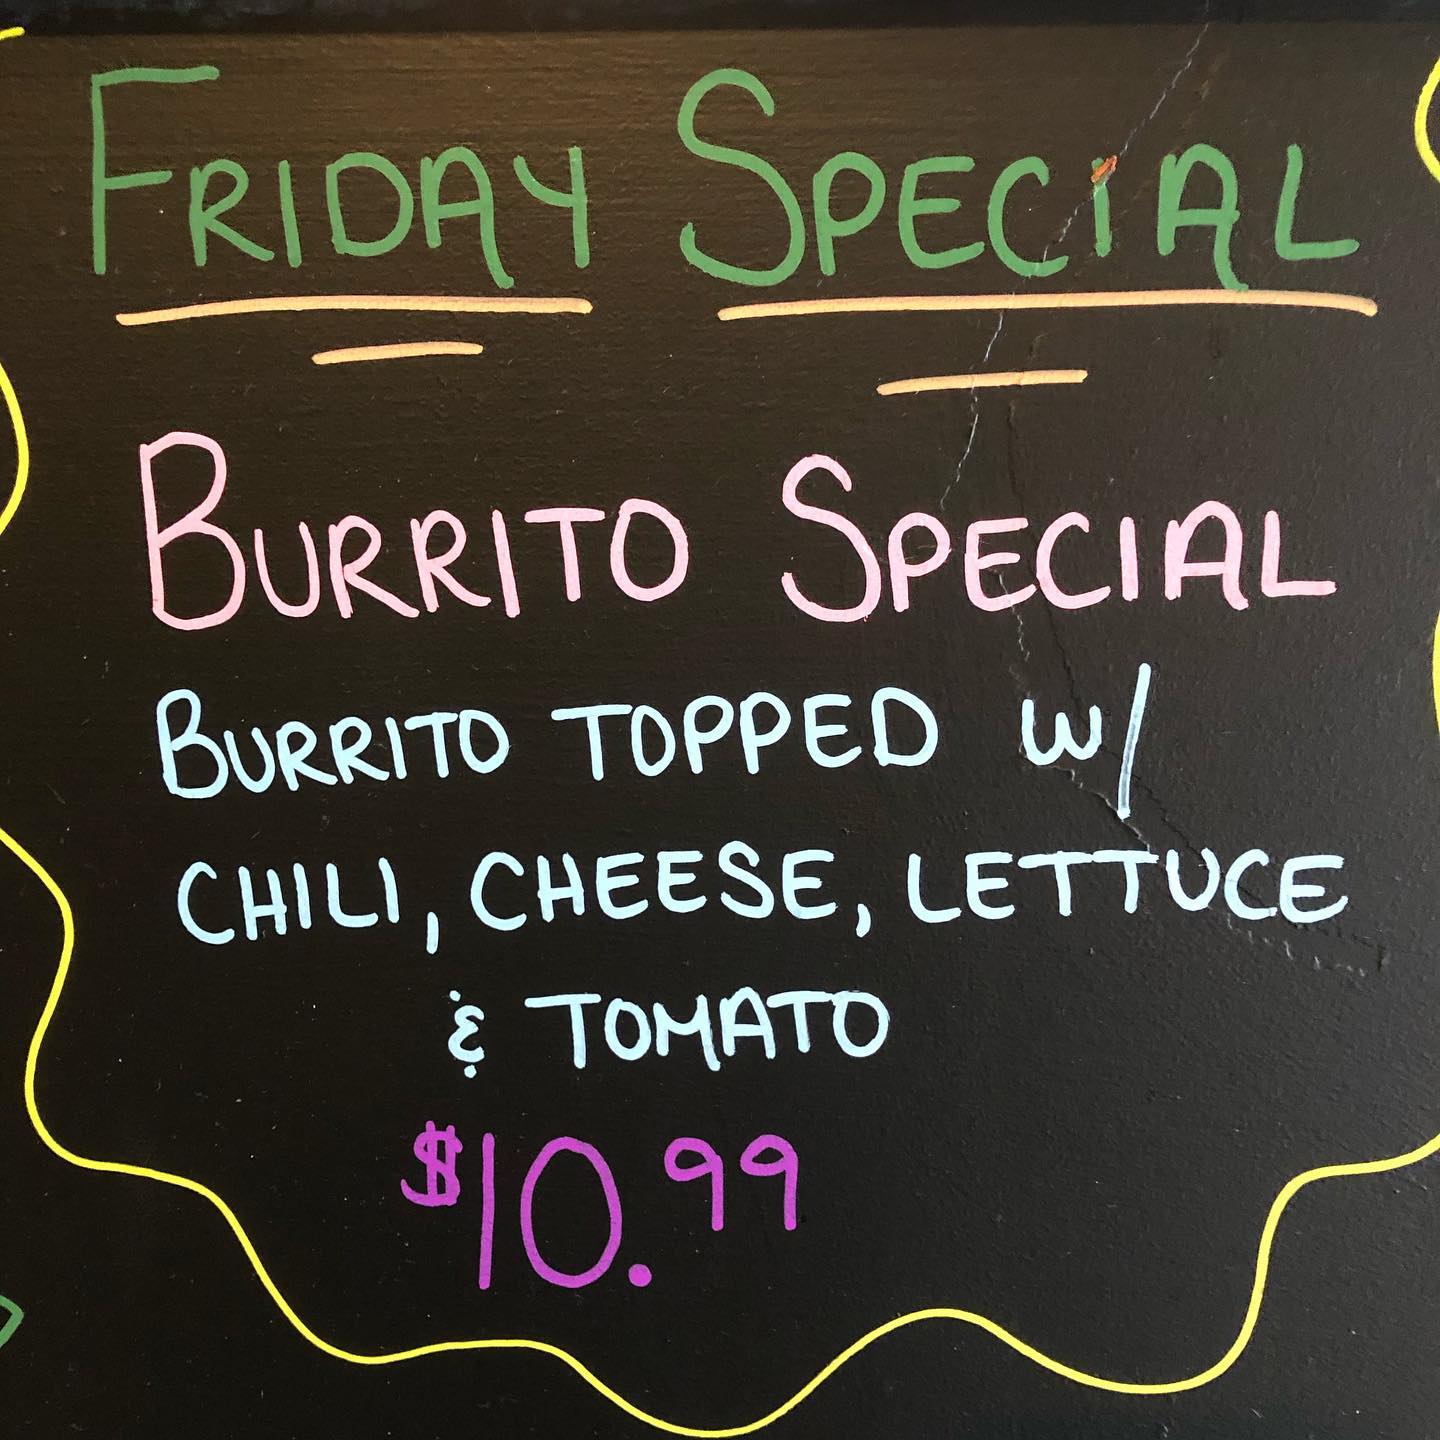 FRIDAY SPECIAL
BURRITO SPECIAL
BURRITO TOPPED w/
CHILI, CHEESE, LETTUCE
& TOMATO
$10.99